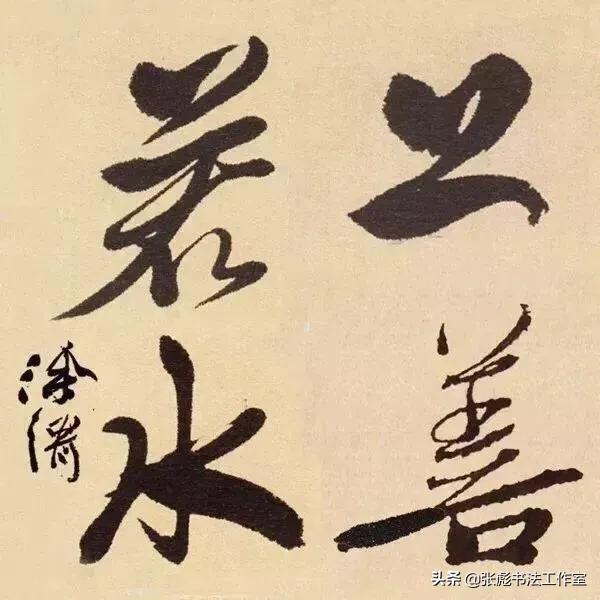 上善
若水
头条 @张彪书法工作室